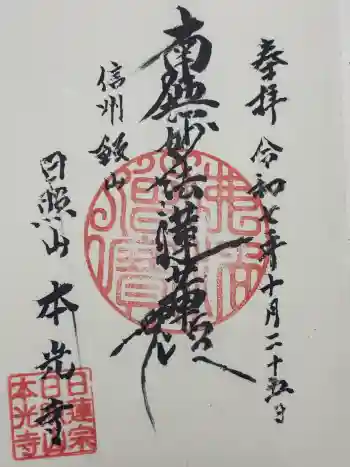 奉拝 令和七年十月二十五日
南無妙法蓮華経
信州 飯山
日照山 本光寺
日蓮宗
日照山
本光寺